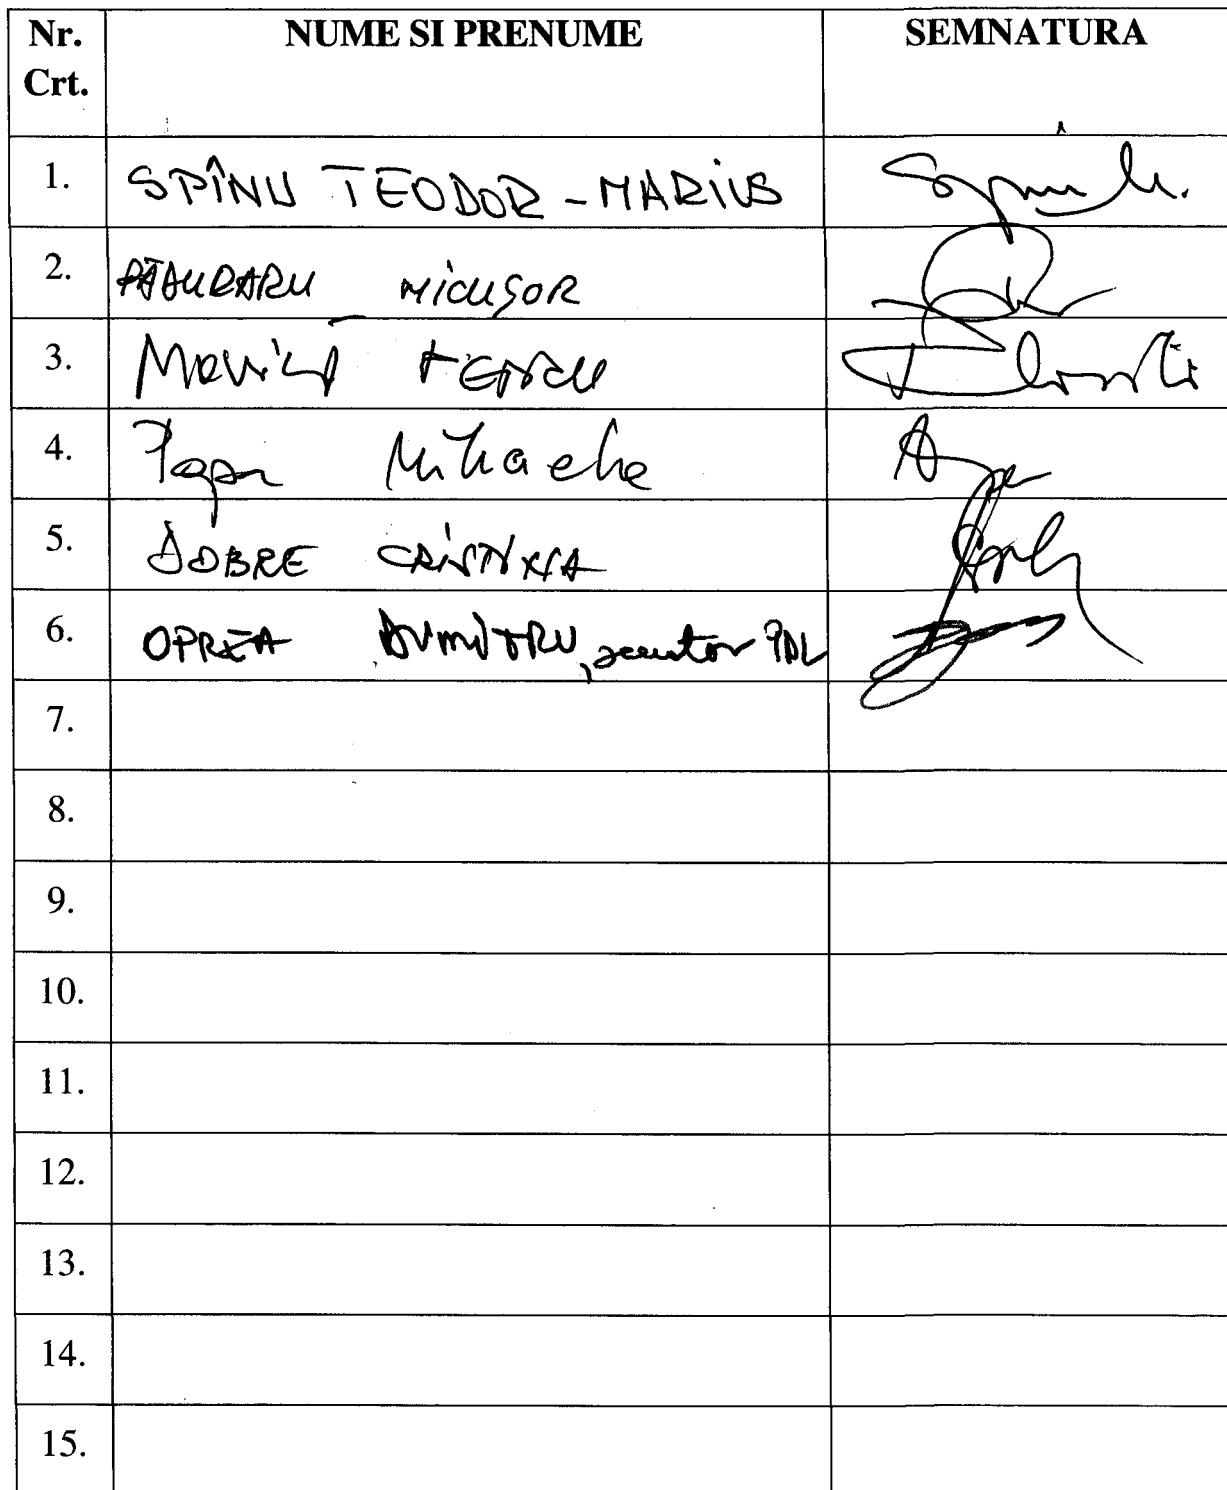 Nr. Crt. NUME SI PRENUME SEMNATURA
1. SPÎNU TEODOR-MARIUS
2. PĂDURARU NICUȘOR
3. Movilă
4. Popa Mihaela
5. DOBRE CRISTINA
6. OPREA DUMITRU, senator PDL
7.
8.
9.
10.
11.
12.
13.
14.
15.